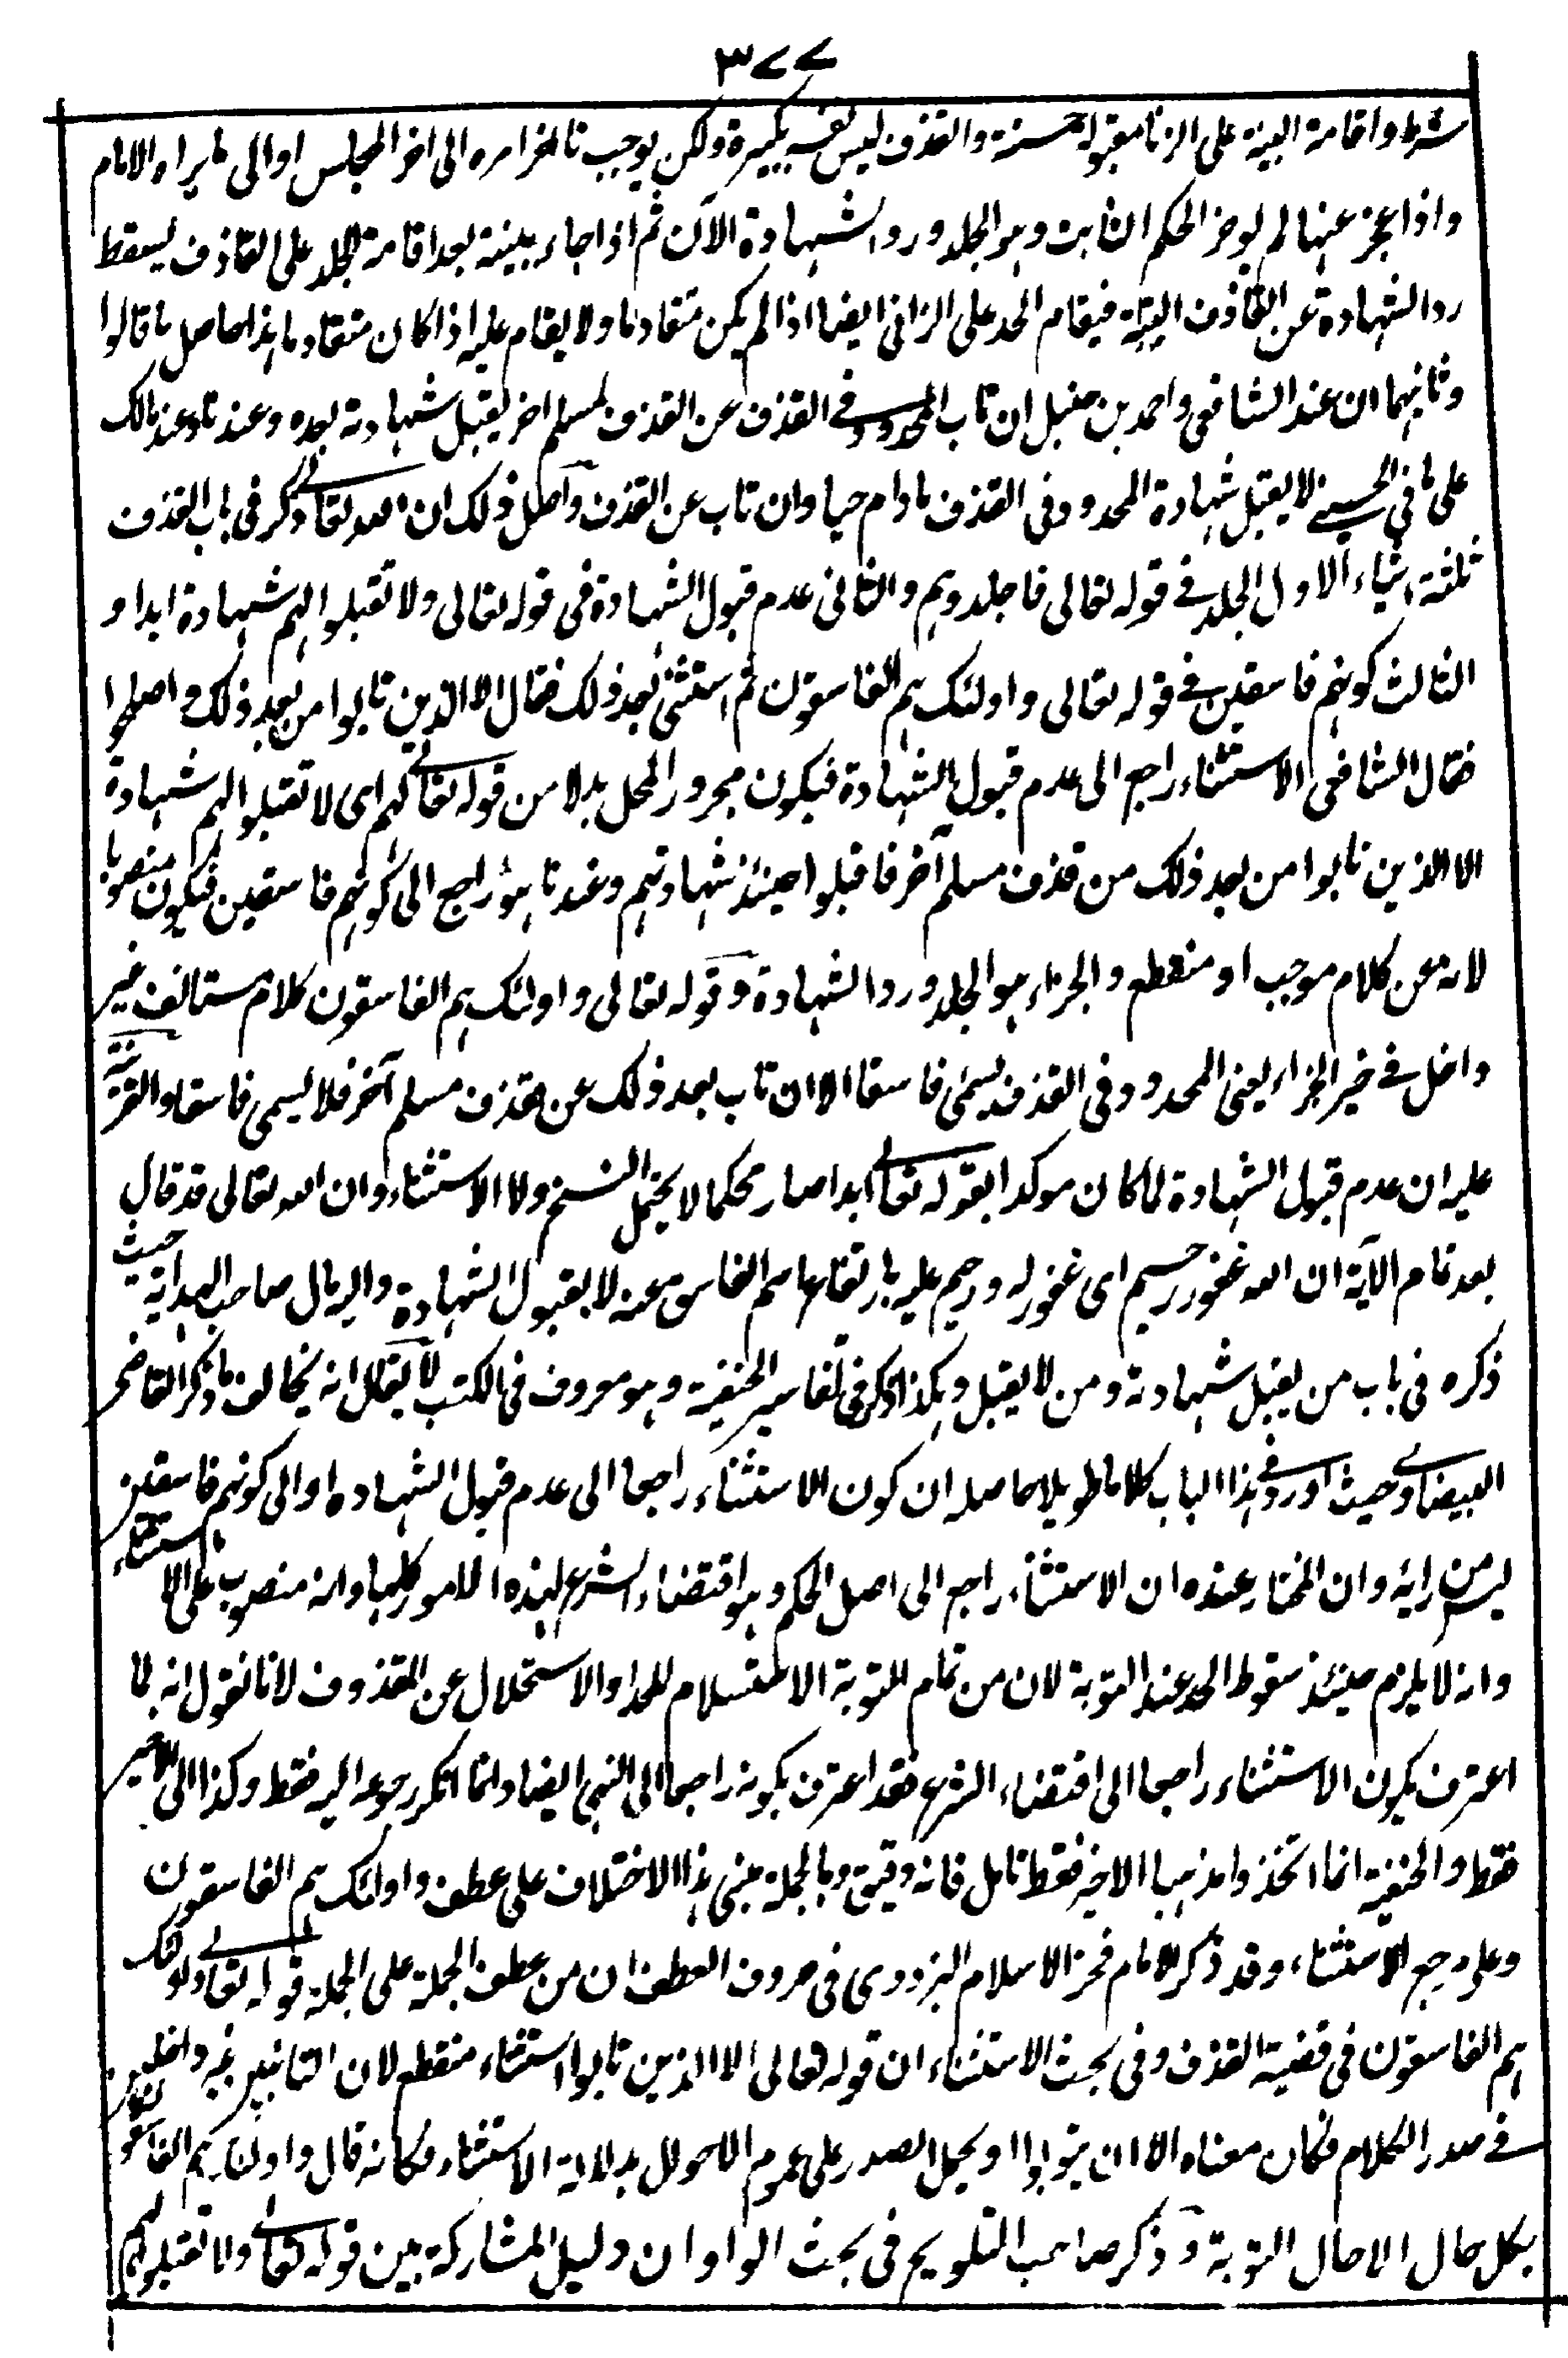 ٣٧٧
شرط واقامة البينة على الزنا مقبولة حسنة والقذف ليس نفسه بكبيرة ولكن يوجب تاخر امره الى اخر المجلس او الى ما يراه الامام
واذا عجز عنها لم يوخر الحكم الثابت وهو الجلد ورد الشهادة الآن ثم اذا جاء ببينة بعد اقامة الجلد على القاذف يسقط
رد الشهادة عن القاذف البتة فيقام الحد على الزانى ايضا اذا لم يكن متقادما ولا يقام عليه اذا كان متقادما هذا حاصل ما قالوا
وثانيهما ان عند الشافعى واحمد بن حنبل ان تاب المحدود فى القذف عن القذف لمسلم اخر يقبل شهادته بعده وعندنا وعند مالك
على ما فى الحسينى لا يقبل شهادة المحدود فى القذف ما دام حيا وان تاب عن القذف واصل ذلك ان الله تعالى ذكر فى باب القذف
ثلثة اشياء الاول الجلد فى قوله تعالى فاجلدوهم والثانى عدم قبول الشهادة فى قوله تعالى ولا تقبلوا لهم شهادة ابدا و
الثالث كونهم فاسقين فى قوله تعالى واولئك هم الفاسقون ثم استثنى بعد ذلك فقال الا الذين تابوا من بعد ذلك واصلحوا
فقال الشافعى الاستثناء راجع الى عدم قبول الشهادة فيكون مجرور المحل بدلا من قوله تعالى لهم اى لا تقبلوا لهم شهادة
الا الذين تابوا من بعد ذلك من قذف مسلم آخر فاقبلوا حينئذ شهادتهم وعندنا هو راجع الى كونهم فاسقين فيكون منصوبا
لانه عن كلام موجب او منقطع والجزاء هو الجلد ورد الشهادة وقوله تعالى واولئك هم الفاسقون كلام مستانف غير
داخل فى خير الجزاء يعنى المحدود فى القذف يسمى فاسقا الا ان تاب بعد ذلك عن قذف مسلم آخر فلا يسمى فاسقا والقرينة
عليه ان عدم قبول الشهادة لما كان موكدا بقوله تعالى ابدا صار محكما لا يحتمل النسخ ولا الاستثناء وان الله تعالى قد قال
بعد تمام الآية ان الله غفور رحيم اى غفور له ورحيم عليه بارتفاع اسم الفاسق عنه لا بقبول الشهادة واليه مال صاحب الهداية حيث
ذكره فى باب من يقبل شهادته ومن لا يقبل وهكذا ذكر فى تفاسير الحنفية وهو معروف فى الكتب لا يقال انه يخالف ما ذكر القاضى
البيضاوى حيث اورد فى هذا الباب كلاما طويلا حاصله ان كون الاستثناء راجعا الى عدم قبول الشهادة او الى كونهم فاسقين
ليس من رايه وان المختار عنده ان الاستثناء راجع الى اصل الحكم وهو اقتضاء الشرع لهذه الامور كلها وانه منصوب على الاستثناء
وانه لا يلزم حينئذ سقوط الحد عند التوبة لان من تمام التوبة الاستسلام للحد او الاستحلال عن المقذوف لانا نقول انه لما
اعترف بكون الاستثناء راجعا الى اقتضاء الشرع فقد اعترف بكونه راجعا الى النهى ايضا وانما انكر رجوعه اليه فقط وكذا الى الاخير
فقط والحنفية انما اتخذوا مذهبا الاخير فقط تامل فانه دقيق وبالجملة مبنى هذا الاختلاف على عطف واولئك هم الفاسقون
وعلى رجع الاستثناء وقد ذكر الامام فخر الاسلام البزدوى فى حروف العطف ان من عطف الجملة على الجملة قوله تعالى واولئك
هم الفاسقون فى قضية القذف وفى بحث الاستثناء ان قوله تعالى الا الذين تابوا استثناء منقطع لان التائبين غير داخلين
فى صدر الكلام فكان معناه الا ان يتوبوا او يحمل الصدر على عموم الاحوال بدلالة الاستثناء فكانه قال واولئك هم الفاسقون
بكل حال الا حال التوبة وذكر صاحب التلويح فى بحث الواو ان دليل المشاركة بين قوله تعالى ولا تقبلوا لهم